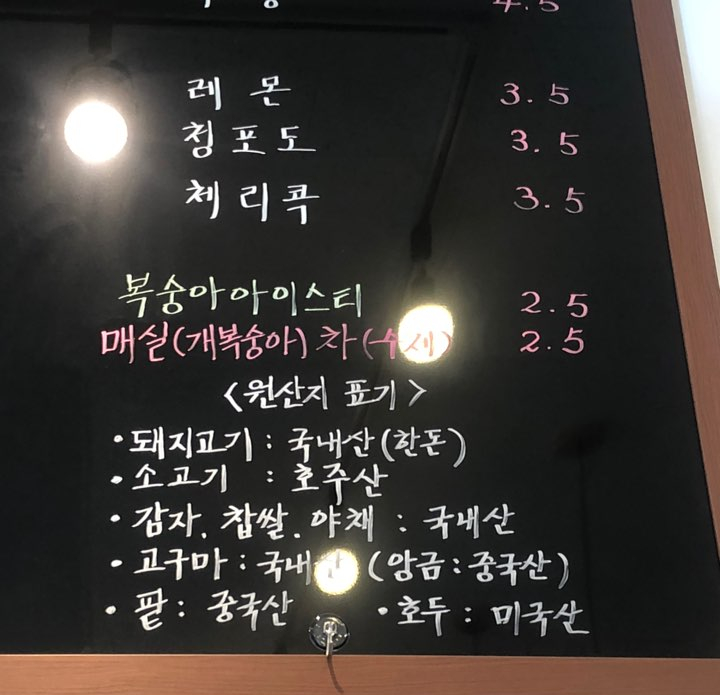 4.5
레 몬 3.5
청포도 3.5
체리콕 3.5
복숭아아이스티 2.5
매실(개복숭아)차(수제) 2.5
<원산지 표기>
·돼지고기 : 국내산(한돈)
·소고기 : 호주산
·감자. 찹쌀. 야채 : 국내산
·고구마 : 국내산 (앙금:중국산)
·팥 : 중국산 ·호두 : 미국산